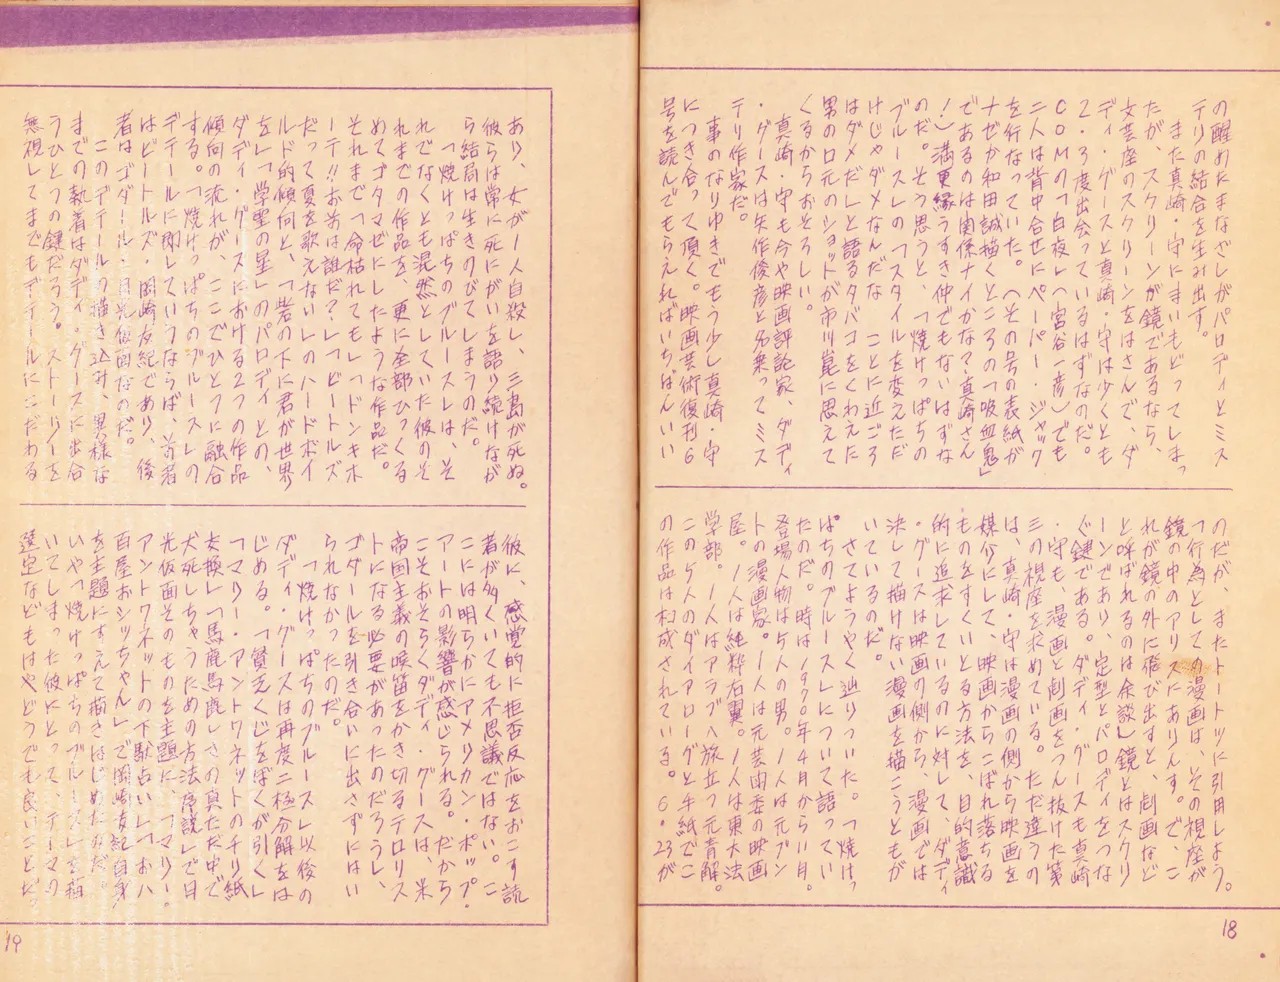 の醒めたまなざしがパロディとミス
テリの結合を生み出す。
また真崎・守にまいもどってしまっ
たが、スクリーンが鏡であるなら、
文芸座のスクリーンをはさんで、ダ
ディ・グースと真崎・守は少くとも
2・3度出会っているはずなのだ。
COMの「白夜」(宮谷一彦)でも
二人は背中合せにペーパー・ジャック
を行なっていた。(その号の表紙が
ナゼか和田誠描くところの「吸血鬼」
であるのは関係ナイかなマ真崎さん
!)満更縁うすき仲でもないはずな
のだ。そう思うと、「焼けっぱちの
ブルース」の「スタイルを変えただ
けじゃダメなんだな ことに近ごろ
はダメだ」と語るタバコをくわえた
男の口元のショットが市川崑に思えて
くるからおそろしい。
真崎・守も今や映画評論家、ダディ
・グースは矢作俊彦と名乗ってミス
テリ作家だ。
事のなりゆきでもう少し真崎・守
につき合って頂く。映画芸術復刊6
号を読んでもらえればいちばんいい
のだが、またトートツに引用しよう。
「行為としての漫画は、その視座が
鏡の中のアリスにありんす。で、こ
れが鏡の外に飛び出すと、劇画など
と呼ばれるのは余談」鏡とはスクリ
ーンであり、定型とパロディをつな
ぐ鍵である。ダディ・グースも真崎
・守も、漫画と劇画をつん抜けた第
三の視座を求めている。ただ違うの
は、真崎・守は漫画の側から映画を
媒介にして、映画からこぼれ落ちる
ものをすくいとる方法を、目的意識
的に追求しているのに対して、ダディ
・グースは映画の側から、漫画では
決して描けない漫画を描こうともが
いているのだ。
さてようやく辿りついた。「焼けっ
ぱちのブルース」について語ってい
たのだ。時は1970年4月から11月。
登場人物は5人の男。1人は元ブン
トの漫画家。1人は元芸闘委の映画
屋。1人は純粋右翼。1人は東大法
学部。1人はアラブへ旅立つ元青解。
この5人のダイアローグと手紙でこ
の作品は構成されている。6・23が
18
あり、女が1人自殺し、三島が死ぬ。
彼らは常に死にがいを語り続けなが
ら結局は生きのびてしまうのだ。
「焼けっぱちのブルース」は、そ
れでなくとも混然としていた彼のそ
れまでの作品を、更に全部ひっくる
めてゴタマゼにしたような作品だ。
それまで「命枯れても」「ドンキホ
ーテ!!おおは誰だ?」「ビートルズ
だって夏を歌えない」のハードボイ
ルド的傾向と、「砦の下に君が世界
を」「学聖の星」のパロディとの、
ダディ・グースにおける2つの作品
傾向の流れが、ここでひとつに融合
する。「焼けっぱちのブルース」の
デテールに即していうならば、前者
はビートルズ・岡崎友紀であり、後
者はゴダール・月光仮面なのだ。
このデテールの描き込み、異様な
までの執着はダディ・グースに出合
うひとつの鍵だろう。ストーリーを
無視してまでもデテールにこだわる
彼に、感覚的に拒否反応をおこす読
者が多くいても不思議ではない。こ
こには明らかにアメリカン・ポップ・
アートの影響が感じられる。だから
こそおそらくダディ・グースは、米
帝国主義の喉笛をかき切るテロリス
トになる必要があったのだろうし、
ゴダールを引き合いに出さずにはい
られなかったのだ。
「焼けっぱちのブルース」以後の
ダディ・グースは再度二極分解をは
じめる。「貧乏くじをぼくが引くし
「マリー・アントワネットのチリ紙
交換」「馬鹿馬鹿しさの真ただ中で
犬死しちゃうための方法序説」で月
光仮面そのものを主題に、「マリー・
アントワネットの下駄占い」「おハ
百屋おシッちゃん」で岡崎友紀自身
を主題にすえて描きはじめたのだ。
いや「焼けっぱちのブルース」を描
いてしまった彼にとって、テーマの
選定などもはやどうでも良いことだっ
19